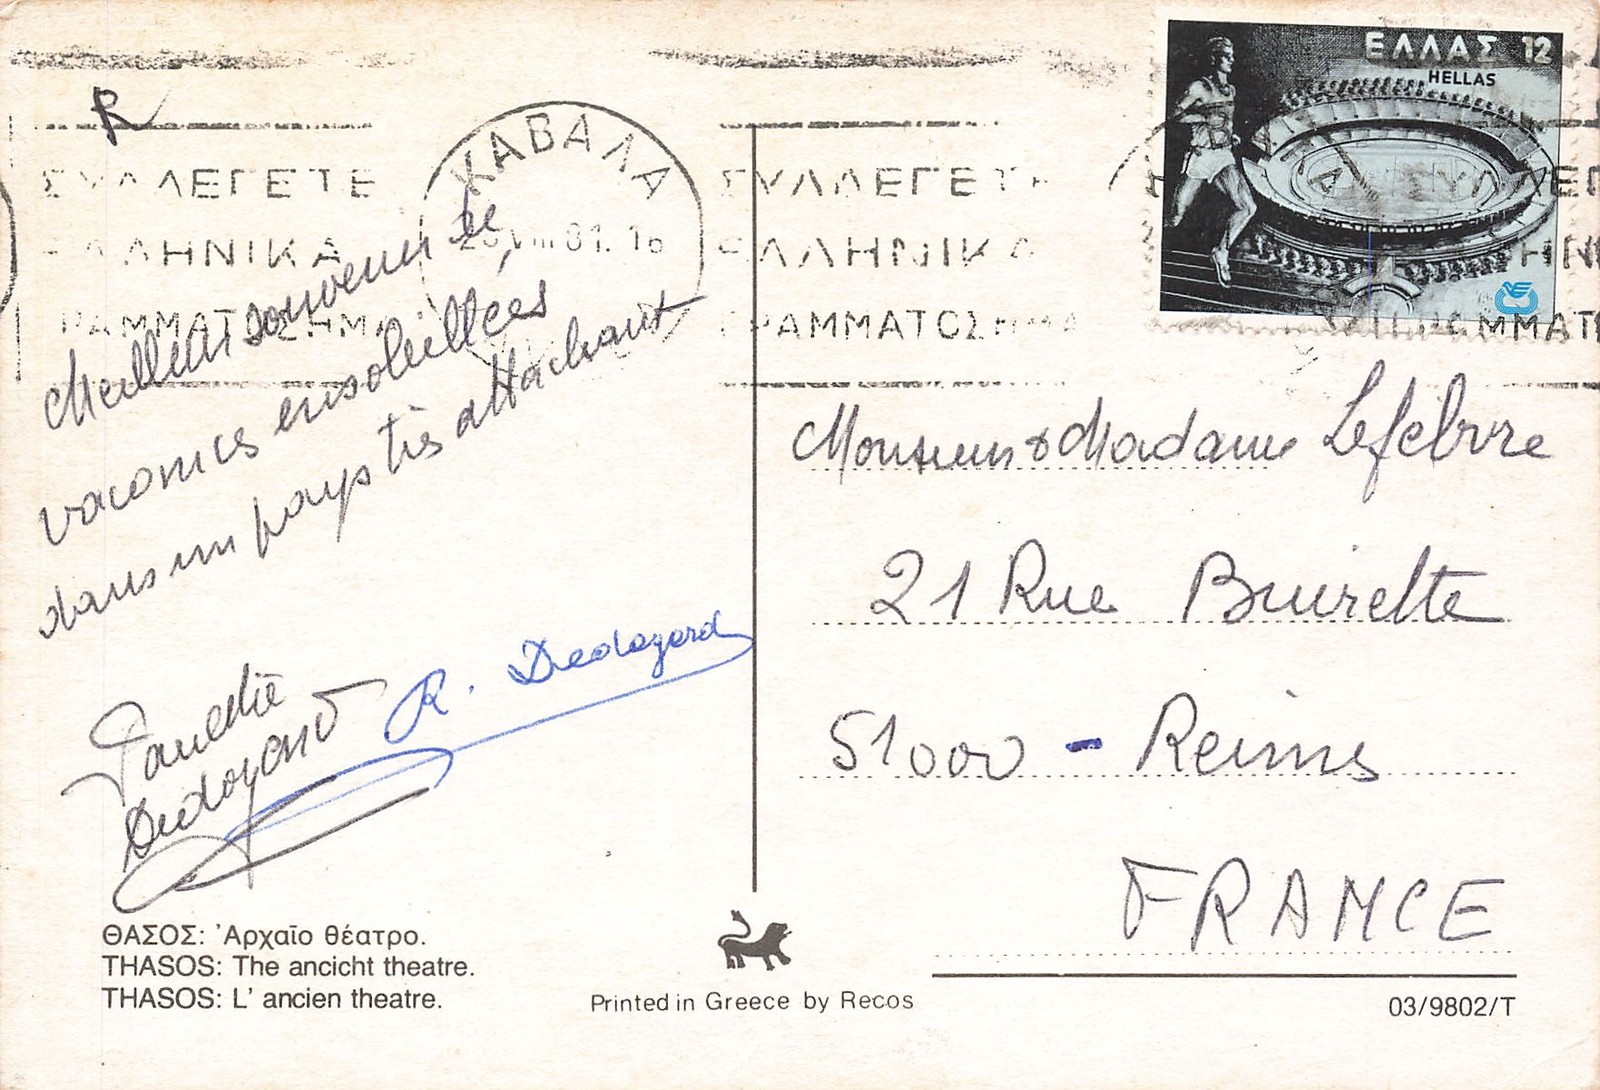 R
ΣΥΛΛΕΓΕΤΕ
ΕΛΛΗΝΙΚΑ
ΓΡΑΜΜΑΤΟΣΗΜΑ
ΚΑΒΑΛΑ
VIII 81. 16
ΣΥΛΛΕΓΕΤΕ
ΕΛΛΗΝΙΚΑ
ΓΡΑΜΜΑΤΟΣΗΜΑ
ΕΛΛΑΣ 12
HELLAS
Meilleur souvenir de
vacances ensoleillées,
dans un pays très attachant
Dedoyard
R. Dedoyard
Monsieur & Madame Lefebvre
21 Rue Buirette
51000 - Reims
FRANCE
ΘΑΣΟΣ: 'Αρχαῖο θέατρο.
THASOS: The ancicht theatre.
THASOS: L' ancien theatre.
Printed in Greece by Recos
03/9802/T